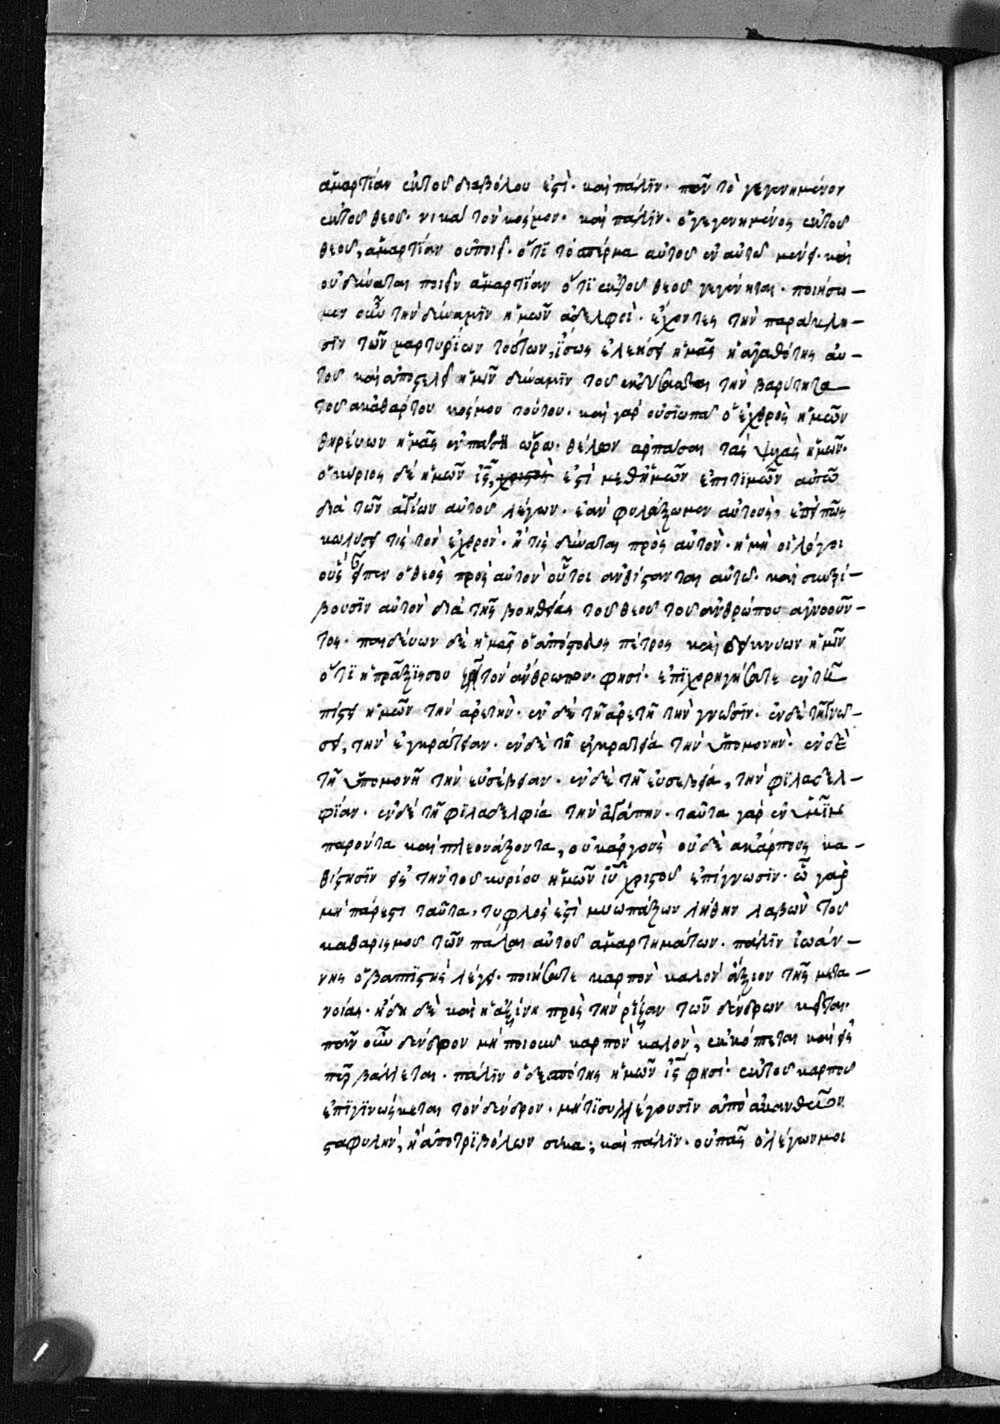 ἁμαρτίαν ἐκ τοῦ διαβόλου ἐστί· καὶ πάλϊν· πᾶν τὸ γεγενημένον
ἐκ τοῦ θεοῦ· νικᾶ τὸν κόσμον· καὶ πάλϊν· ὁ γεγενημένος ἐκ τοῦ
θεοῦ, ἁμαρτίαν οὐ ποιεῖ· ὅτϊ τὸ σπέρμα αὐτοῦ ἐν αὐτῶ μένει· καὶ
οὐ δύναται ποιεῖν ἁμαρτϊαν ὅτϊ ἐκ τοῦ θεοῦ γεγένηται· ποιήσω-
μεν οὖν τὴν δύναμϊν ἡμῶν ἀδελφοὶ· ἔχοντες τὴν παράκλη-
σϊν τῶν μαρτυρϊῶν τούτων, ἴσως ἐλεήσει ἡμᾶς ἡ ἀγαθότης αὐ-
τοῦ καὶ ἀποστελεῖ ἡμῖν δύναμϊν τοῦ ἐκδύσασθαι τὴν βαρύτητα
τοῦ ἀκαθάρτου κόσμου τούτου· καὶ γὰρ οὐ σϊωπᾶ ὁ ἐχθρὸς ἡμῶν
θηρεύων ἡμᾶς ἐν πάση ὥρα· θέλων ἁρπάσαι τὰς ψυχὰς ἡμῶν·
ὁ κύριος δὲ ἡμῶν ἰς χριστὸς ἐστὶ μεθ' ἡμῶν ἐπιτϊμῶν αὐτῶ
διὰ τῶν ἁγίων αὐτοῦ λέγων· ἐὰν φυλάξωμεν αὐτοὺς· ἐπεὶ πῶς
κωλύσει τίς τὸν ἐχθρὸν· ἢ τίς δύναται πρὸς αὐτὸν· ἢ μὴ οἱ λόγοι
οὓς εἶπεν ὁ θεὸς πρὸς αὐτὸν οὗτοι ἀνθίστανται αὐτῶ· καὶ συντρί-
βουσϊν αὐτὸν διὰ τῆς βοηθείας τοῦ θεοῦ τοῦ ἀνθρώπου ἀγνοοῦν-
τος· παιδεύων δὲ ἡμᾶς ὁ ἀπόστολος πέτρος καὶ δεικνύων ἡμῖν
ὅτϊ ἡ πρᾶξϊς σου τὸν ἄνθρωπον· φησὶ· ἐπϊχορηγήσατε ἐν τῆ
πίστει ἡμῶν τὴν ἀρετὴν· ἐν δὲ τῆ ἀρετῆ τὴν γνῶσϊν· ἐν δὲ τῆ γνώ-
σει, τὴν ἐγκράτειαν· ἐν δὲ τῆ ἐγκρατεία τὴν ὑπομονὴν· ἐν δὲ
τῆ ὑπομονῆ τὴν εὐσέβειαν· ἐν δὲ τῆ εὐσεβεία, τὴν φϊλαδελ-
φΐαν· ἐν δὲ τῆ φϊλαδελφία τὴν ἀγάπην· ταῦτα γὰρ ἐν ὑμῖν
παρόντα καὶ πλεονάζοντα, οὐκ ἀργοὺς οὐδὲ ἀκάρπους κα-
θίστησϊν εἰς τὴν τοῦ κυρίου ἡμῶν ἰῦ χριστοῦ ἐπίγνωσϊν· ᾧ γὰρ
μὴ πάρεστι ταῦτα, τυφλὸς ἐστὶ μυωπάζων λήθην λαβὼν τοῦ
καθαρισμοῦ τῶν πάλαι αὐτοῦ ἁμαρτημάτων· πάλϊν ἰωάν-
νης ὁ βαπτϊστὴς λέγει· ποιήσατε καρπὸν καλὸν ἄξιον τῆς μετα-
νοίας· ἤδη δὲ καὶ ἡ ἀξίνη πρὸς τὴν ρίζαν τῶν δένδρων κεῖται·
πᾶν οὖν δένδρον μὴ ποιοῦν καρπὸν καλὸν, ἐκκόπτεται καὶ εἰς
πῦρ βάλλεται· πάλϊν ὁ δεσπότης ἡμῶν ἰς φησὶ· ἐκ τοῦ καρποῦ
ἐπϊγϊνώσκεται τὸ δένδρον· μήτϊ συλλέγουσϊν ἀπὸ ἀκανθῶν
σταφυλὴν, ἢ ἀπὸ τρϊβόλων σῦκα; καὶ πάλϊν· οὐ πᾶς ὁ λέγων μοι